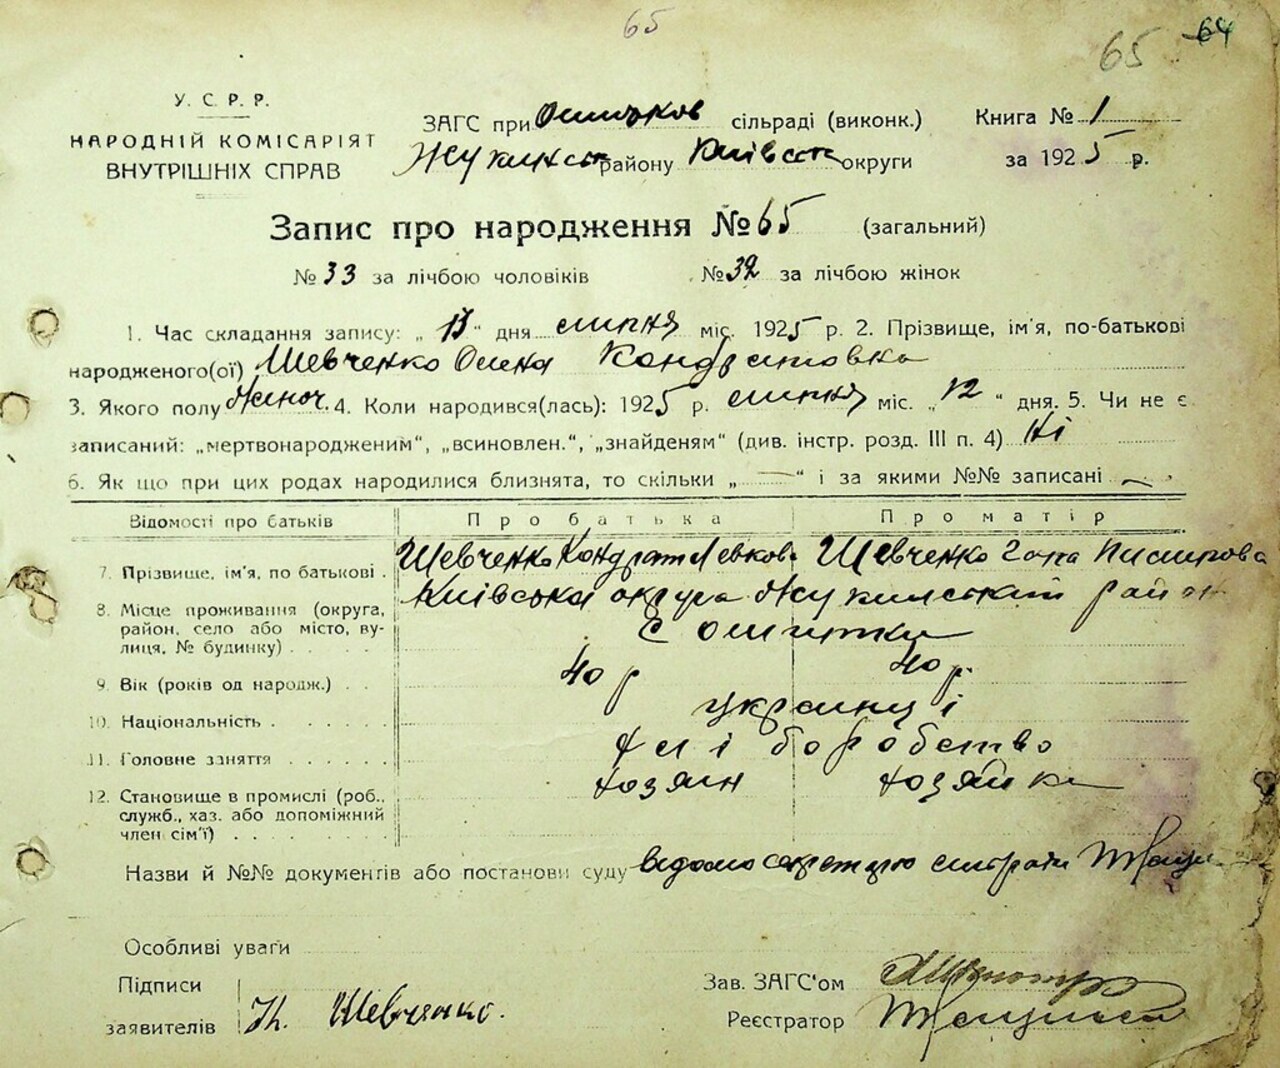 65
65 64
У. С. Р. Р.
НАРОДНІЙ КОМІСАРІЯТ
ВНУТРІШНІХ СПРАВ
ЗАГС при Ошитков сільраді (виконк.)
Жукинськ району Київськ округи
Книга № 1
за 1925 р.
Запис про народження № 65 (загальний)
№ 33 за лічбою чоловіків № 32 за лічбою жінок
1. Час складання запису: „ 13 " дня липня міс. 1925 р. 2. Прізвище, ім'я, по-батькові
народженого(ої) Шевченко Кондратовна
3. Якого полу жіноч. 4. Коли народився(лась): 1925 р. липня міс. „ 12 " дня. 5. Чи не є
записаний: „мертвонародженим", „всиновлен.", „знайденям" (див. інстр. розд. III п. 4) Ні
6. Як що при цих родах народилися близнята, то скільки „ — " і за якими №№ записані —
Відомості про батьків Про батька Про матір
7. Прізвище, ім'я, по батькові . Шевченко Кондрат Левков Шевченко Гапа
8. Місце проживання (округа, район, село або місто, вулиця, № будинку) . . Київська округа Жукинський район
с Ошитки
9. Вік (років од народж.) . . 40 р 40 р.
10. Національність . . . . . . українці
11. Головне заняття . . . . . . хліборобство
12. Становище в промислі (роб., служб., хаз. або допоміжний член сім'ї) . . . . . . . хозяин хозяйка
Назви й №№ документів або постанови суду відомо секретарю сільради
Особливі уваги
Підписи
заявителів К. Шевченко.
Зав. ЗАГС'ом
Реєстратор